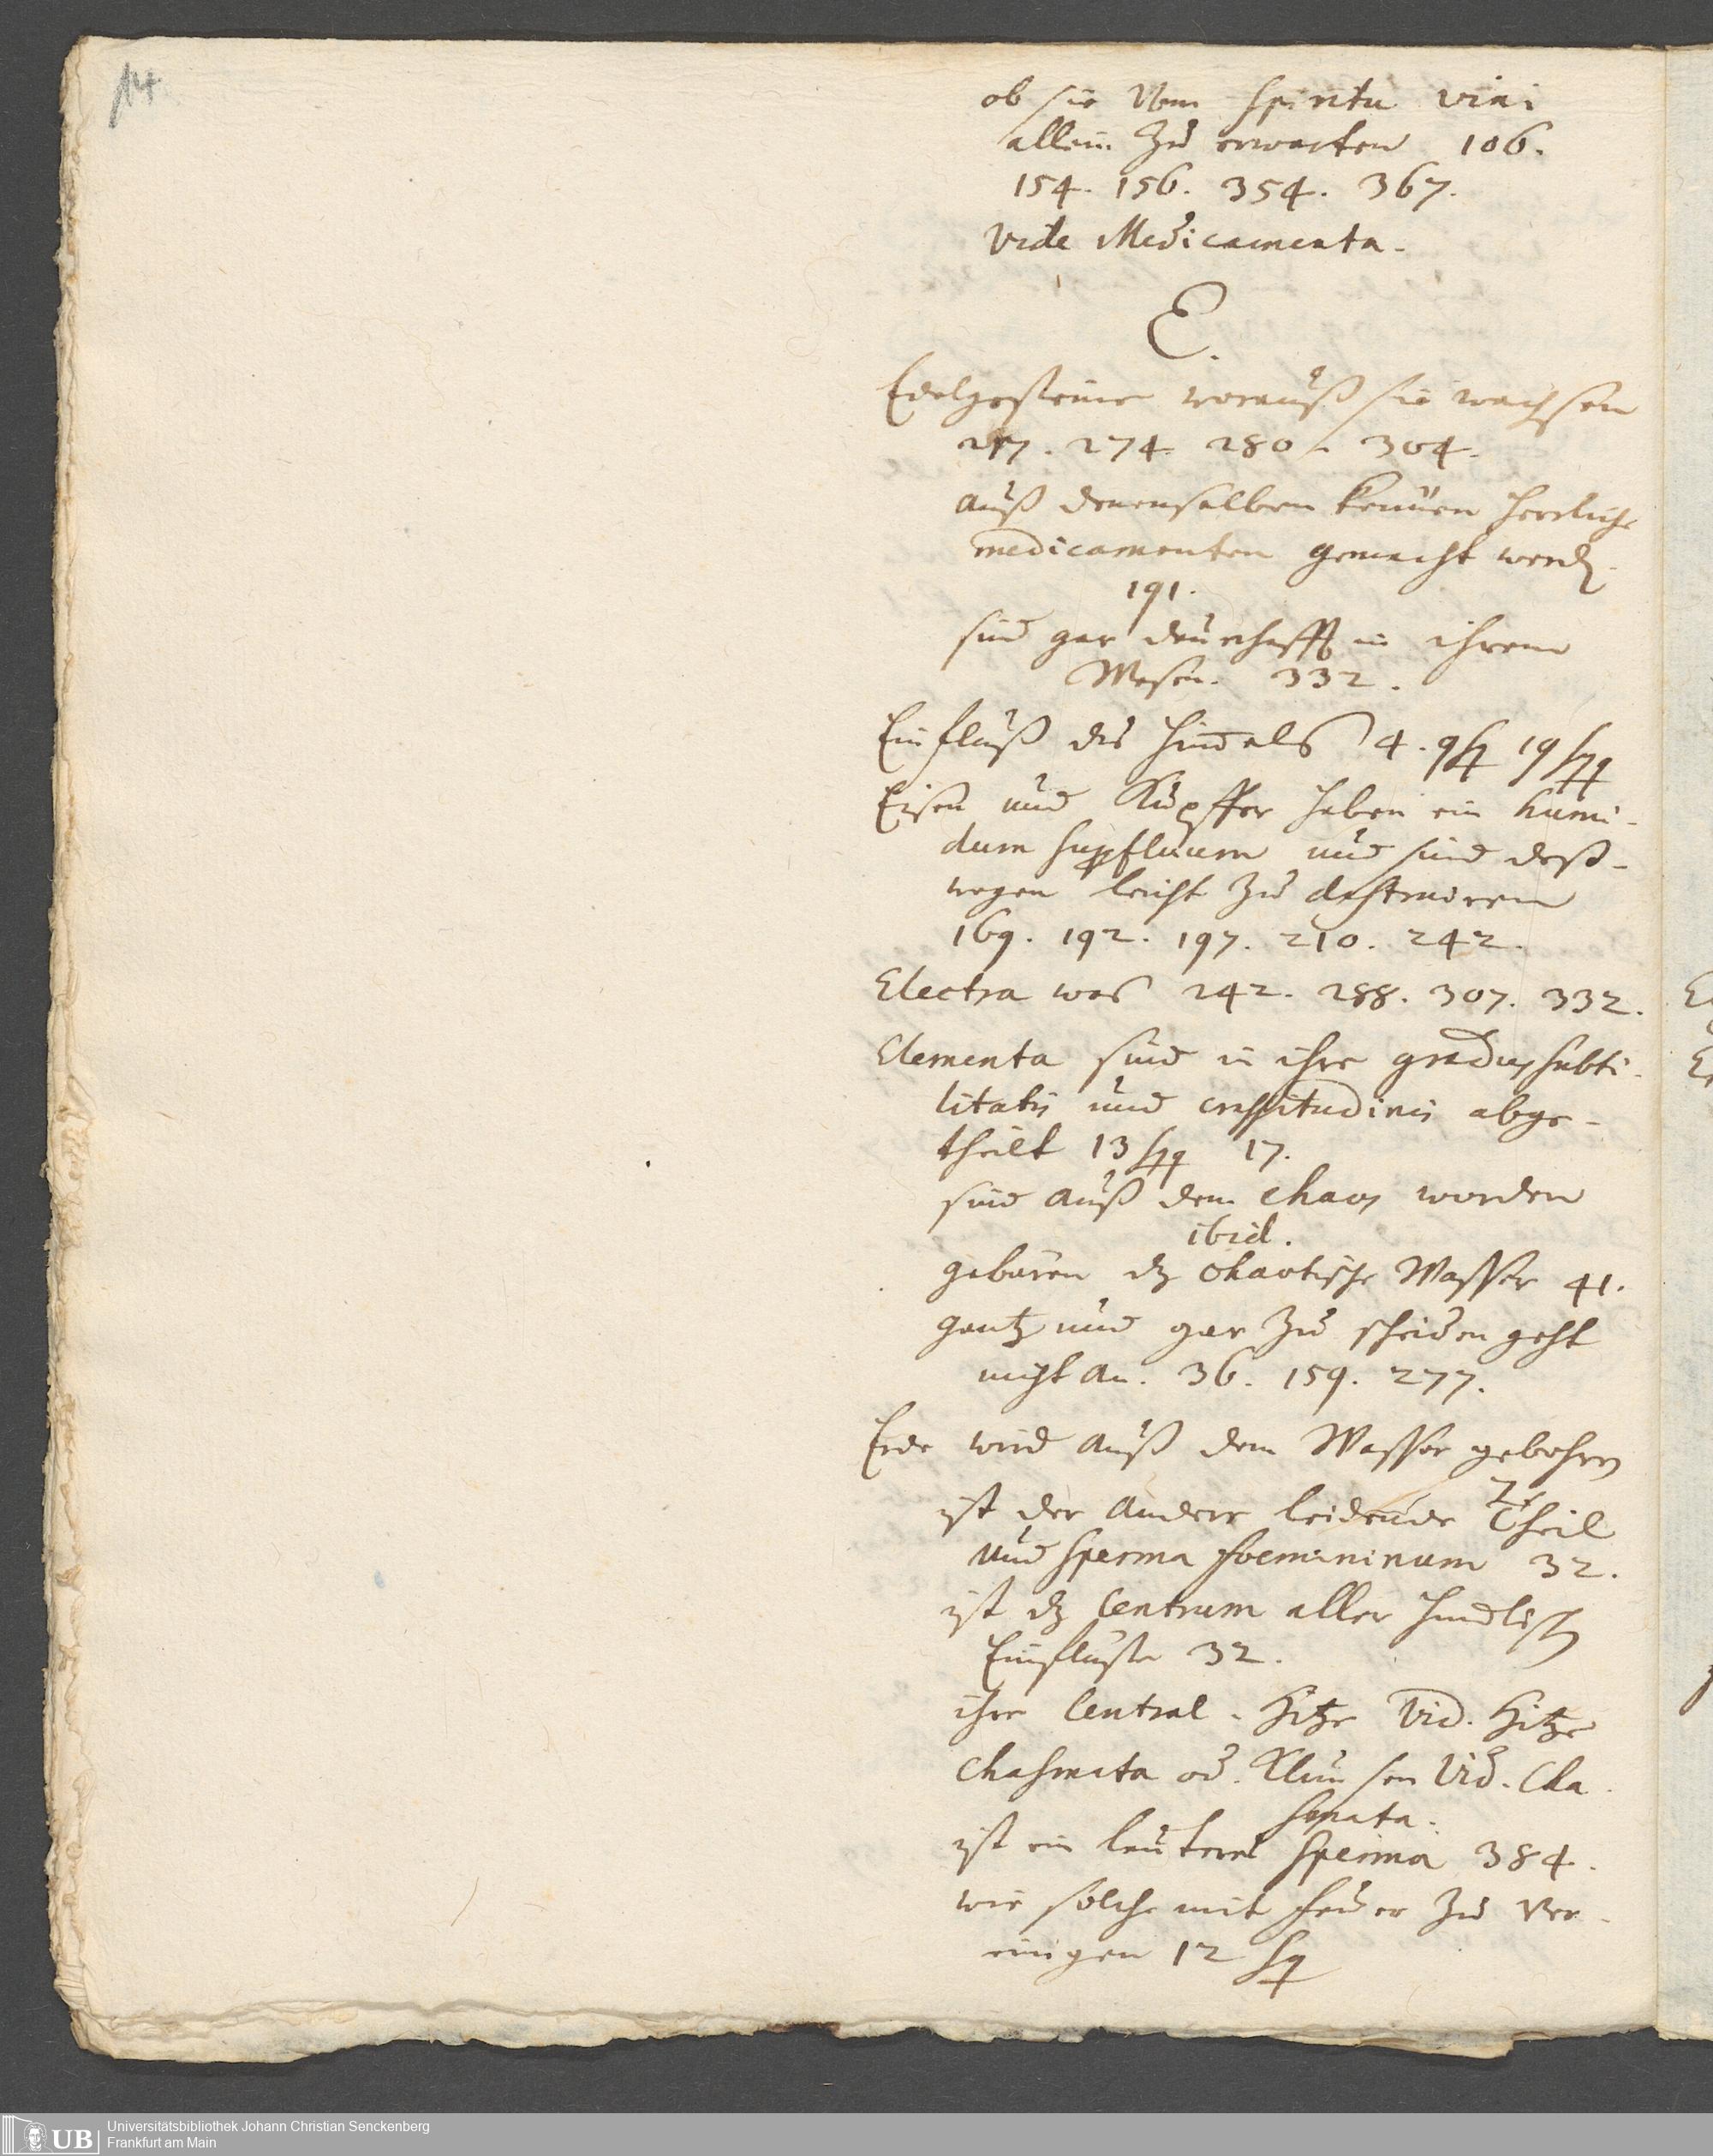 14
ob sie vom Spiritu vini
allein zu erwarten 106.
154. 156. 354. 367.
vide Medicamenta.
E.
Edelgesteine worauß sie wachsen
217. 274. 280. 304.
auß denenselben können herrliche
medicamenten gemacht werdẽ.
191.
sind gar daurhafft in ihrem
Wesen. 332.
Einfluß des Him̅els 4. 9 sq 19 sqq
Eisen und Kupffer haben ein humi-
dum supfluum und sind deß-
wegen leicht zu destruiren
169. 192. 197. 210. 242.
Electra was 242. 288. 307. 332.
Elementa sind in ihre gradus subti-
litatis und crassitudinis abge-
theilt 13 sqq 17.
sind auß dem chaos worden
ibid.
gebären dz chaotische Wasser 41.
gantz und gar zu scheiden geht
nicht an. 36. 159. 277.
Erde wird auß dem Wasser gebohren
ist der andere leidende Theil
und Sperma foemininum 32.
ist dz Centrum aller him̅lisch
Einflüße 32.
ihre Central-Hitze vid. Hitze
Chasmata od. Klunsen vid. Cha
smata.
ist ein lauteres Sperma 384.
wie solche mit feuer zu ver-
einigen 12 sq
UB Universitätsbibliothek Johann Christian Senckenberg
Frankfurt am Main